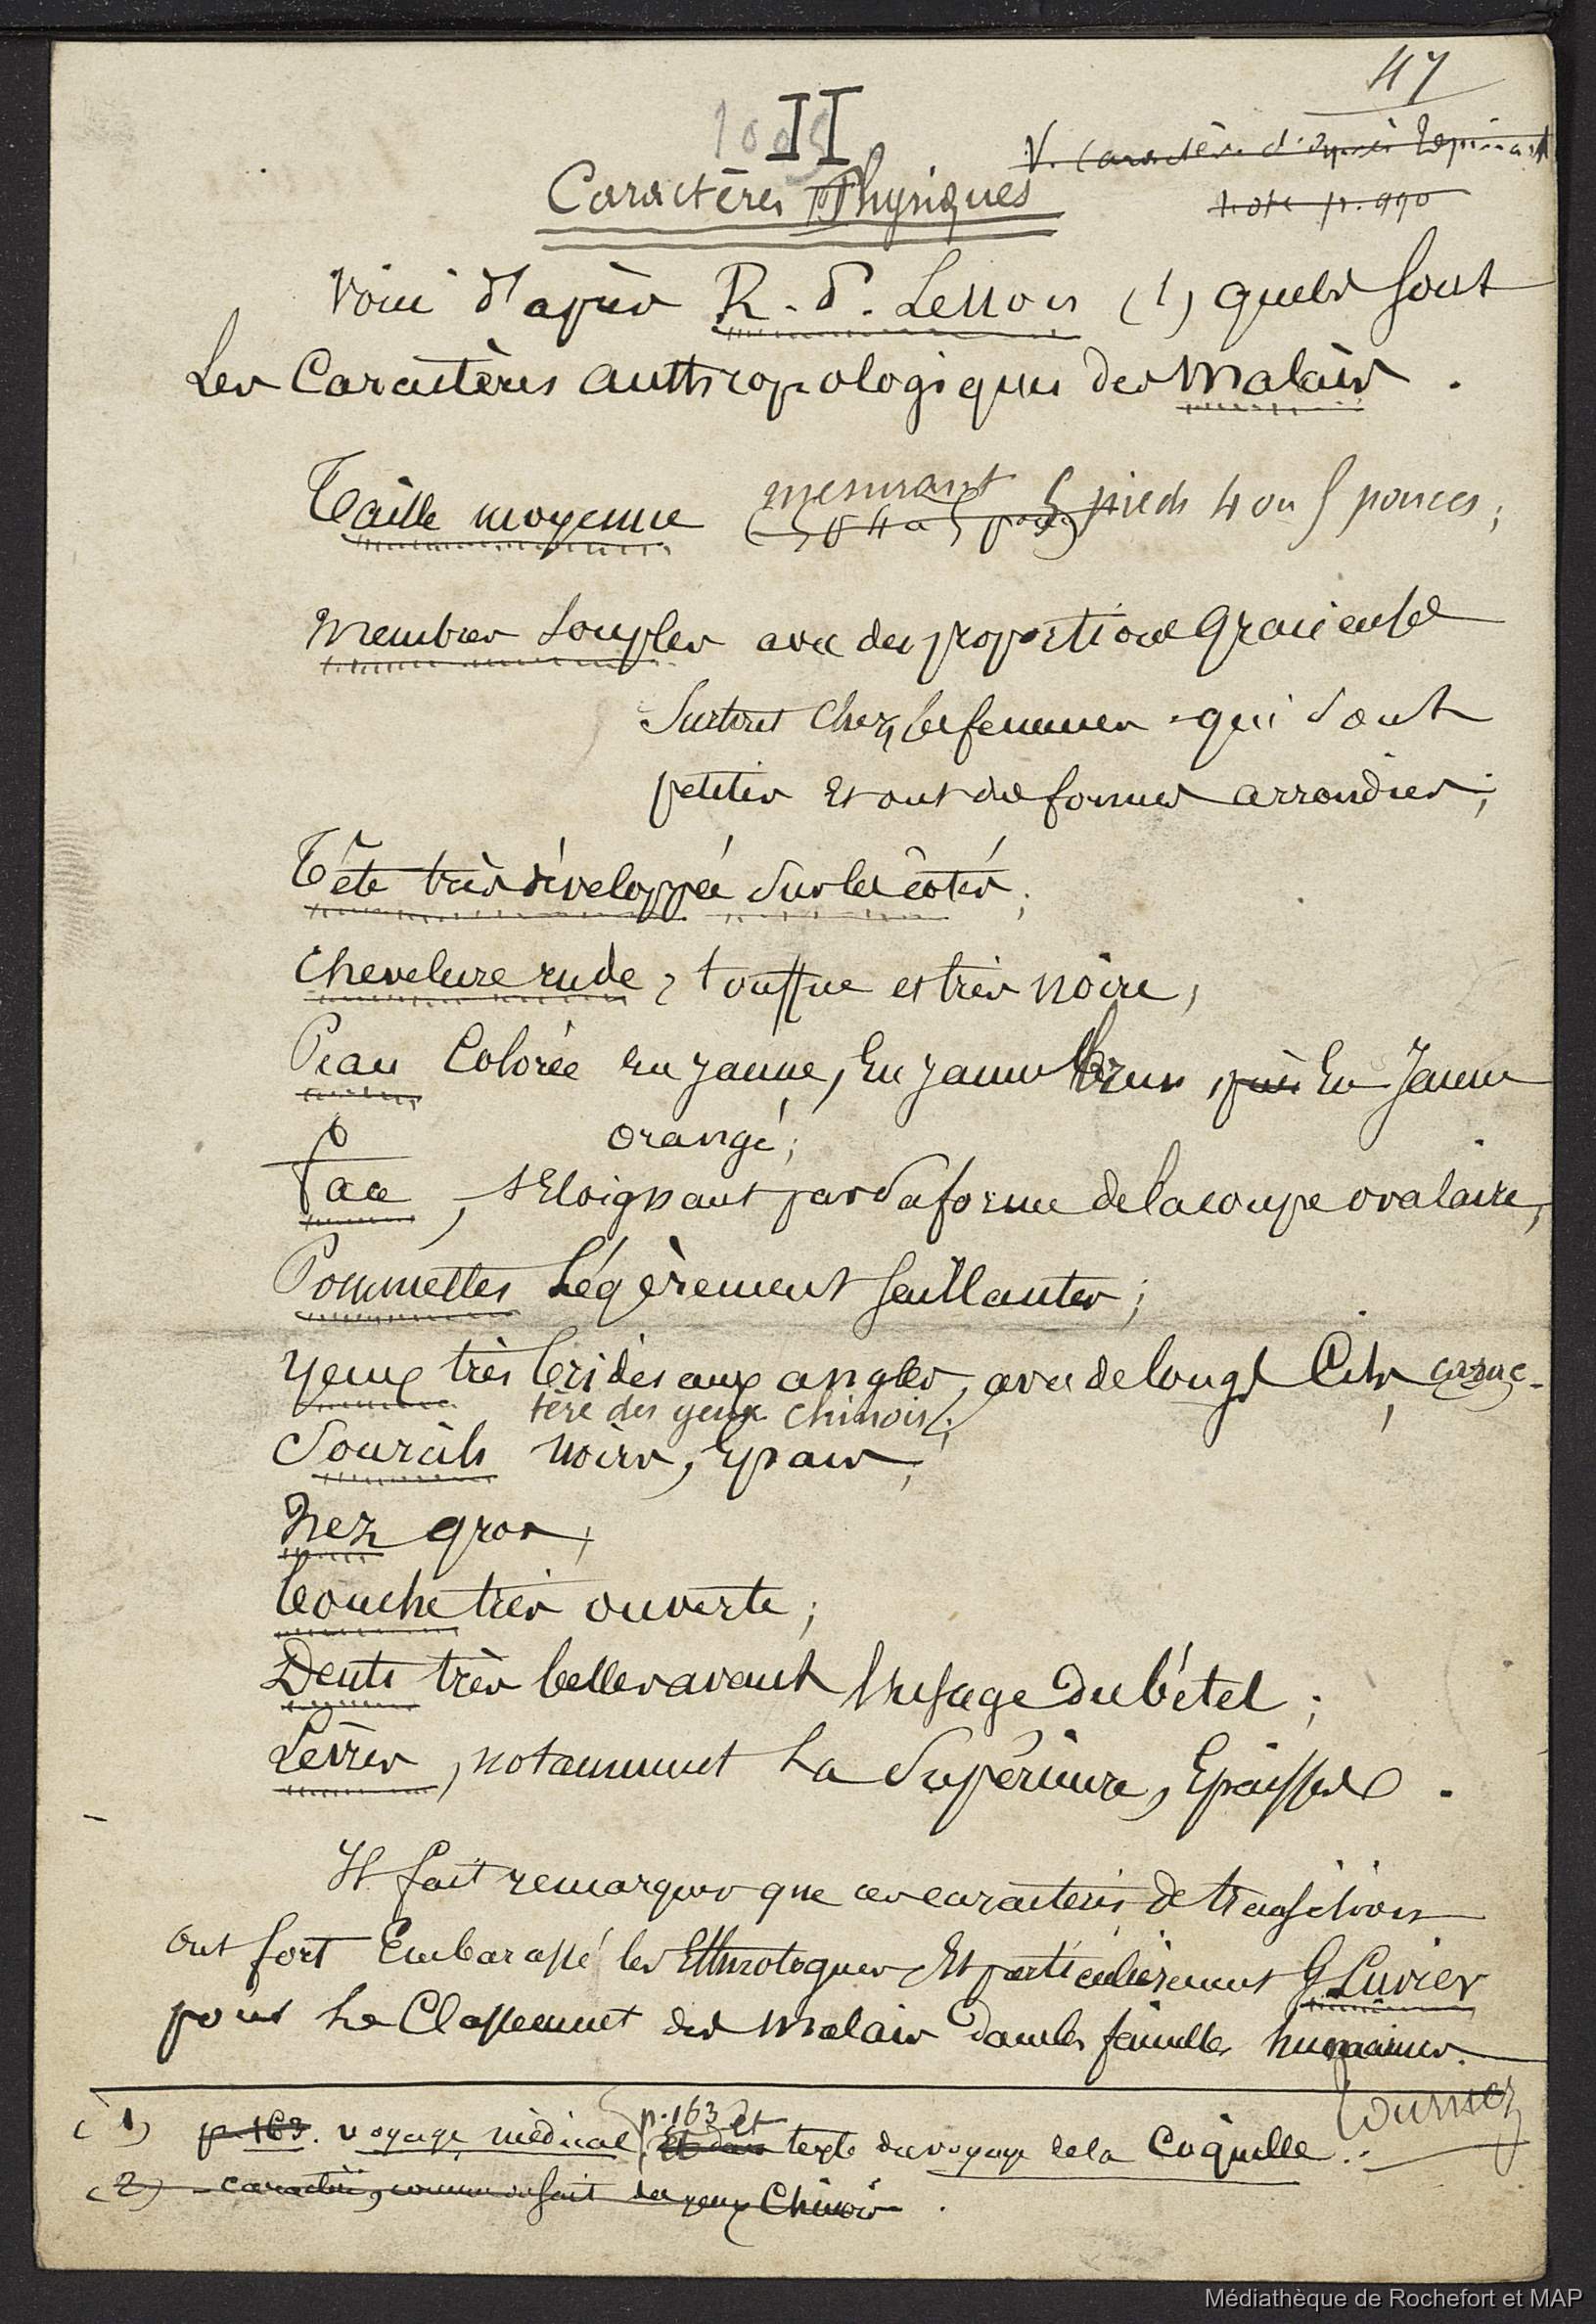 47
II
V. Caractères d'après Topinard
note p. 990
Caractères Physiques
Voici d'après R. P. Lesson (1) quels sont
Les Caractères anthropologiques des Malais.
Taille moyenne mesurant 5 pieds 4 ou 5 pouces;
Membres souples avec des proportions gracieuses
Surtout chez les femmes qui sont
petites et ont des formes arrondies;
Tête très développée sur les côtés;
Chevelure rude, touffue et très noire;
Peau Colorée en jaune, En jaune brun, puis En Jaune
orangé;
Face, s'Eloignant par sa forme de la coupe ovalaire,
Pommettes Légèrement saillantes;
Yeux très bridés aux angles, avec de longs Cils, carac-
tère des yeux chinois;
Sourcils noirs, Epais;
Nez gros;
bouche très ouverte;
Dents très belles avant l'usage du bétel;
Lèvres, notamment La Supérieure, Epaisses.
Il fait remarquer que ces caractères de transition
ont fort Embarassé les Ethnologues Et particulièrement G Cuvier
pour Le Classement des Malais dans les familles humaines.
Tournez
(1) p. 163. voyage médical p. 163 et Et dans texte du voyage de la Coquille.
(2) caractère, comme on sait des yeux Chinois.
Médiathèque de Rochefort et MAP